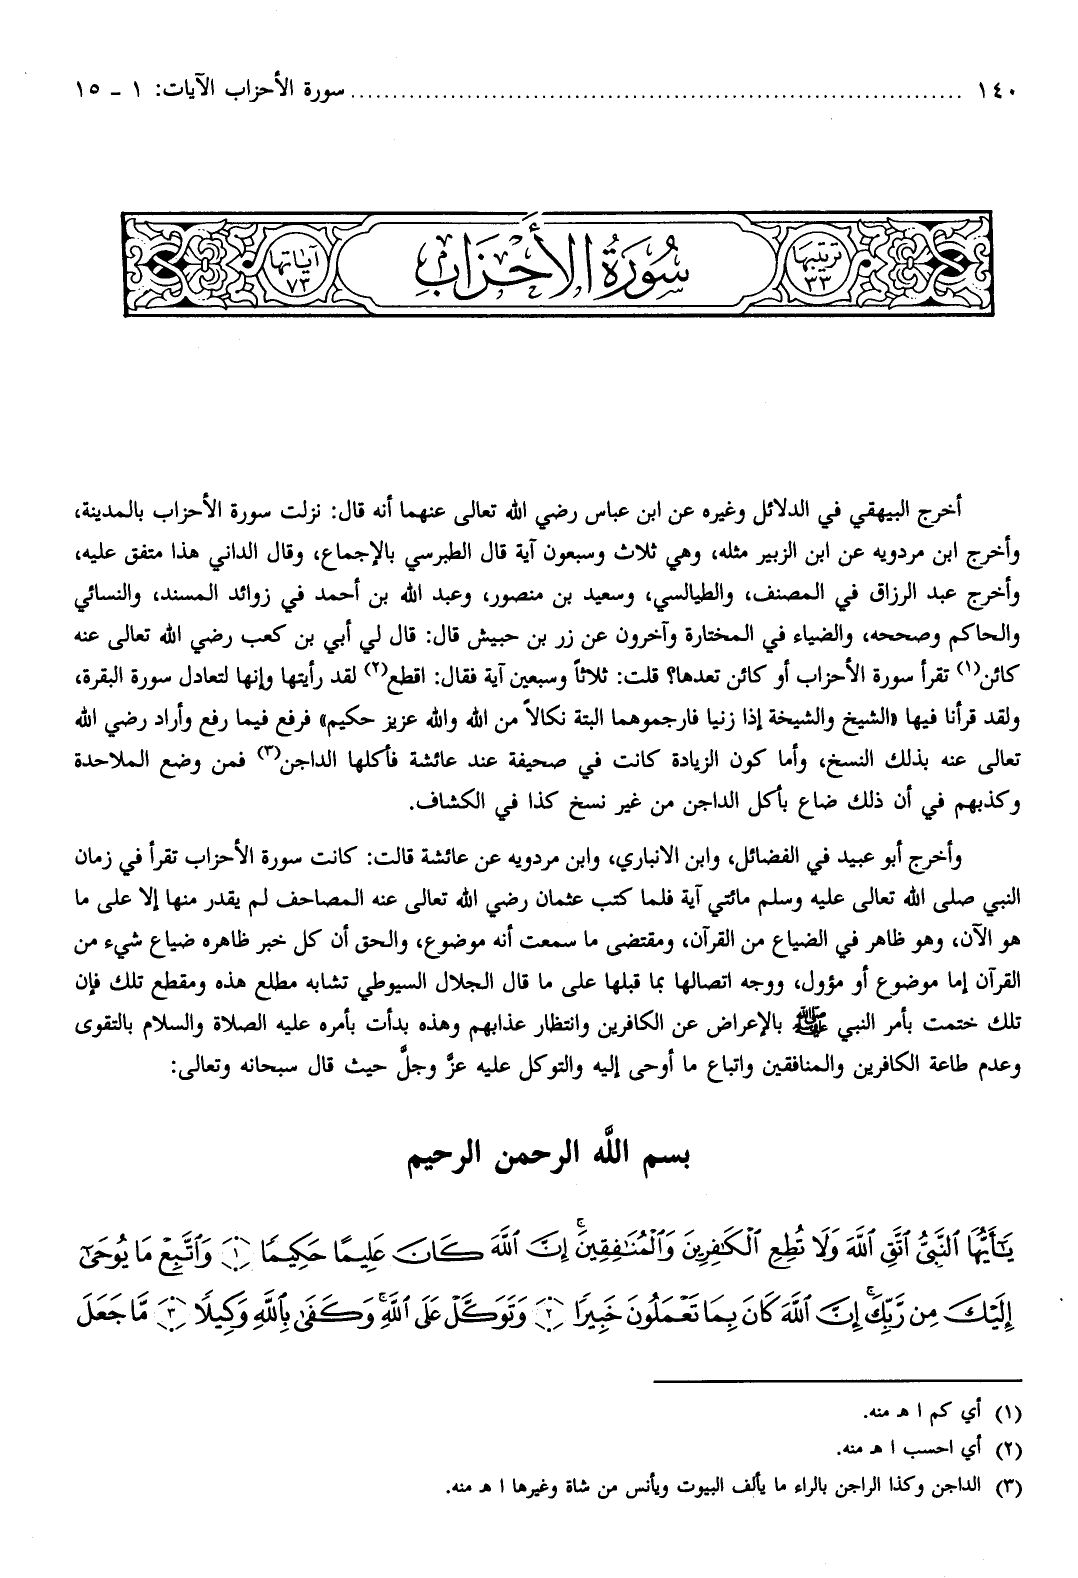 ١٤٠ ........................................................ سورة الأحزاب الآيات: ١ ـ ١٥
ترتيبها ٣٣ سُورَةُ الأَحْزَابِ آياتها ٧٣
أخرج البيهقي في الدلائل وغيره عن ابن عباس رضي الله تعالى عنهما أنه قال: نزلت سورة الأحزاب بالمدينة،
وأخرج ابن مردويه عن ابن الزبير مثله، وهي ثلاث وسبعون آية قال الطبرسي بالإجماع، وقال الداني هذا متفق عليه،
وأخرج عبد الرزاق في المصنف، والطيالسي، وسعيد بن منصور، وعبد الله بن أحمد في زوائد المسند، والنسائي
والحاكم وصححه، والضياء في المختارة وآخرون عن زر بن حبيش قال: قال لي أبي بن كعب رضي الله تعالى عنه
كائن(١) تقرأ سورة الأحزاب أو كائن تعدها؟ قلت: ثلاثاً وسبعين آية فقال: اقطع(٢) لقد رأيتها وإنها لتعادل سورة البقرة،
ولقد قرأنا فيها «الشيخ والشيخة إذا زنيا فارجموهما البتة نكالاً من الله والله عزيز حكيم» فرفع فيما رفع وأراد رضي الله
تعالى عنه بذلك النسخ، وأما كون الزيادة كانت في صحيفة عند عائشة فأكلها الداجن(٣) فمن وضع الملاحدة
وكذبهم في أن ذلك ضاع بأكل الداجن من غير نسخ كذا في الكشاف.
وأخرج أبو عبيد في الفضائل، وابن الانباري، وابن مردويه عن عائشة قالت: كانت سورة الأحزاب تقرأ في زمان
النبي صلى الله تعالى عليه وسلم مائتي آية فلما كتب عثمان رضي الله تعالى عنه المصاحف لم يقدر منها إلا على ما
هو الآن، وهو ظاهر في الضياع من القرآن، ومقتضى ما سمعت أنه موضوع، والحق أن كل خبر ظاهره ضياع شيء من
القرآن إما موضوع أو مؤول، ووجه اتصالها بما قبلها على ما قال الجلال السيوطي تشابه مطلع هذه ومقطع تلك فإن
تلك ختمت بأمر النبي ﷺ بالإعراض عن الكافرين وانتظار عذابهم وهذه بدأت بأمره عليه الصلاة والسلام بالتقوى
وعدم طاعة الكافرين والمنافقين واتباع ما أوحى إليه والتوكل عليه عزَّ وجلَّ حيث قال سبحانه وتعالى:
بسم اللَّه الرحمن الرحيم
يَٰٓأَيُّهَا ٱلنَّبِيُّ ٱتَّقِ ٱللَّهَ وَلَا تُطِعِ ٱلْكَٰفِرِينَ وَٱلْمُنَٰفِقِينَ ۚ إِنَّ ٱللَّهَ كَانَ عَلِيمًا حَكِيمًا ﴿١﴾ وَٱتَّبِعْ مَا يُوحَىٰٓ
إِلَيْكَ مِن رَّبِّكَ ۚ إِنَّ ٱللَّهَ كَانَ بِمَا تَعْمَلُونَ خَبِيرًا ﴿٢﴾ وَتَوَكَّلْ عَلَى ٱللَّهِ ۚ وَكَفَىٰ بِٱللَّهِ وَكِيلًا ﴿٣﴾ مَّا جَعَلَ
(١) أي كم ا هـ منه.
(٢) أي احسب ا هـ منه.
(٣) الداجن وكذا الراجن بالراء ما يألف البيوت ويأنس من شاة وغيرها ا هـ منه.